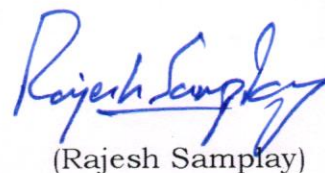 Rajesh Samplay
(Rajesh Samplay)